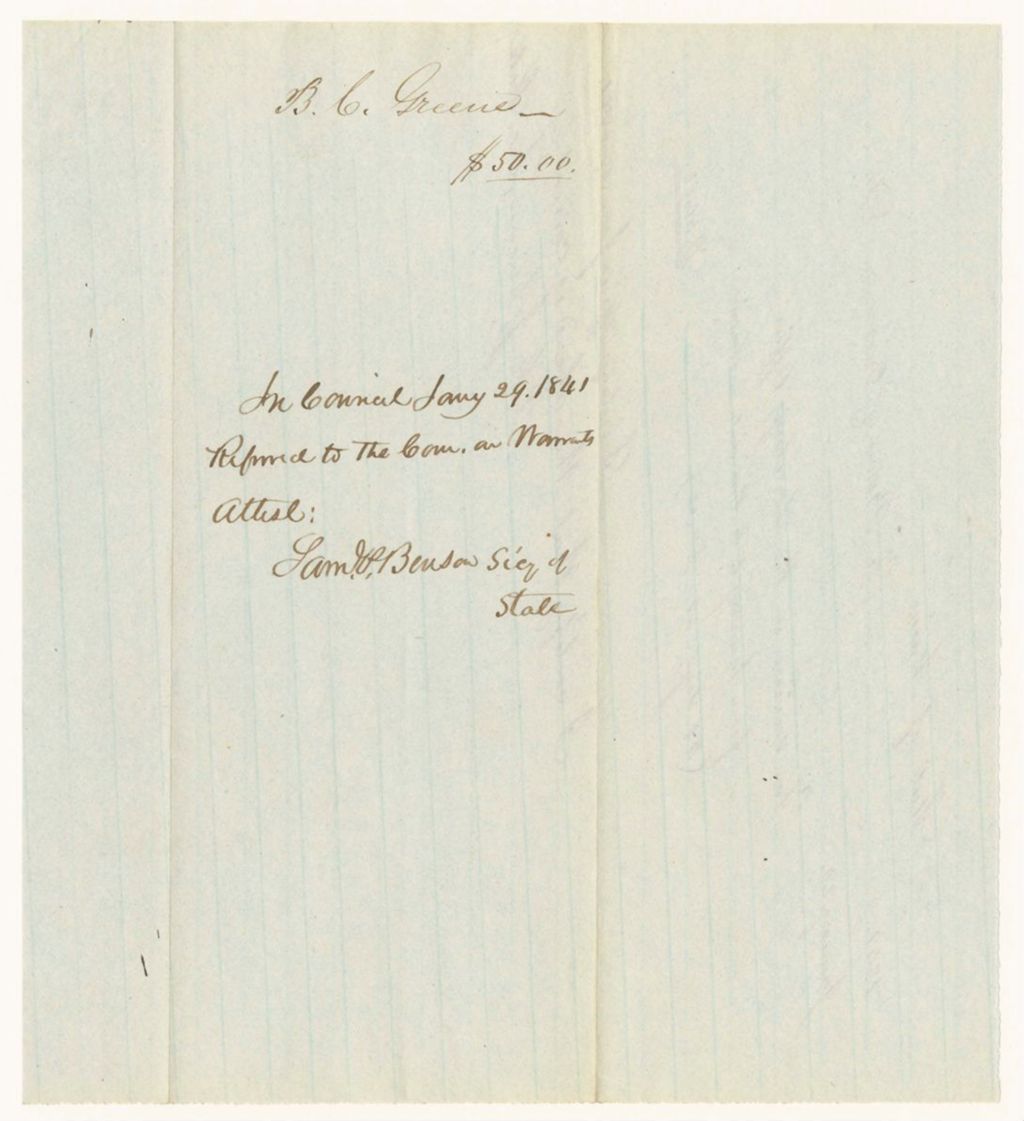 B. C. Greene —
$50.00.
In Council Jany 29. 1841
Referred to the Com. on Warrants
Attest:
Saml. P. Benson Sec'y of
State